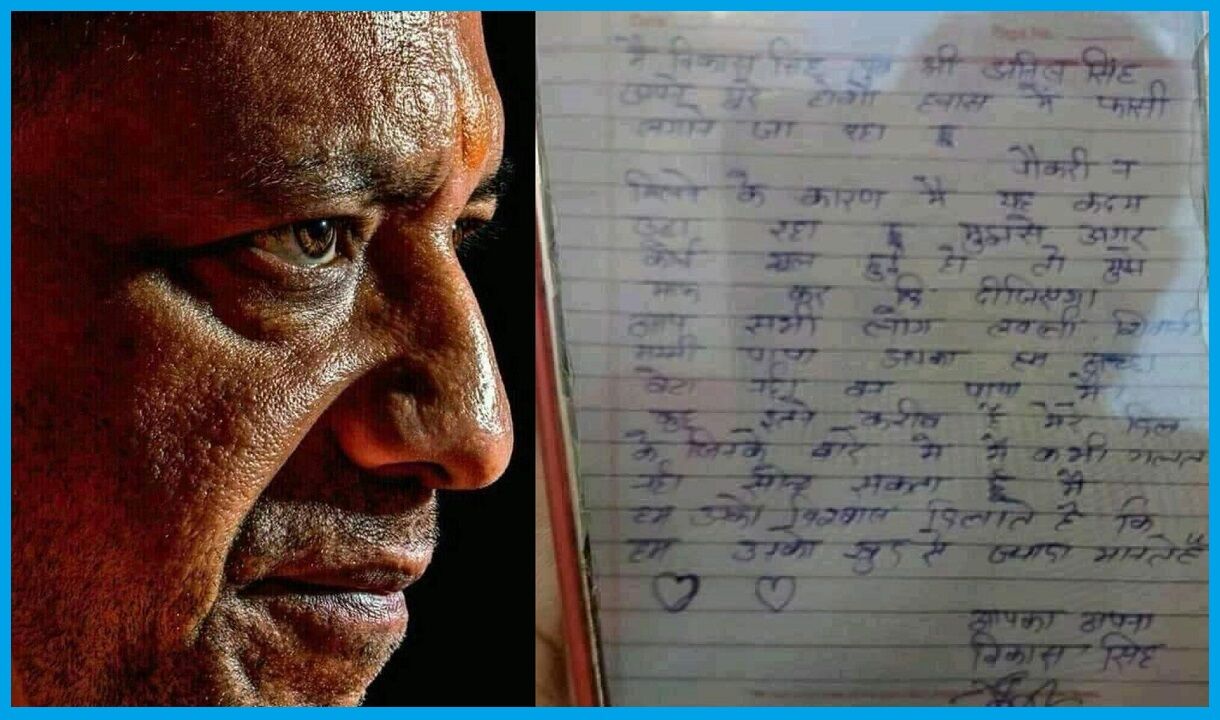 मै विकास सिंह पुत्र श्री अनिल सिंह
अपने पूरे होशो हवास में फासी
लगाने जा रहा हू
नौकरी न
मिलने के कारण मै यह कदम
उठा रहा हू मुझसे अगर
कोई भूल हुई हो तो मुझे
माफ कर दीजिएगा
आप सभी लोग
मम्मी पापा आपका हम अच्छा
बेटा नही बन पाया मै।
कुछ इतने करीब है मेरे दिल
के जिनके बारे मे मै कभी गलत
नही सोच सकता हू मै
हम उनको विश्वास दिलाते है कि
हम उनको खुद से ज्यादा मानते है
आपका अपना
विकास सिंह